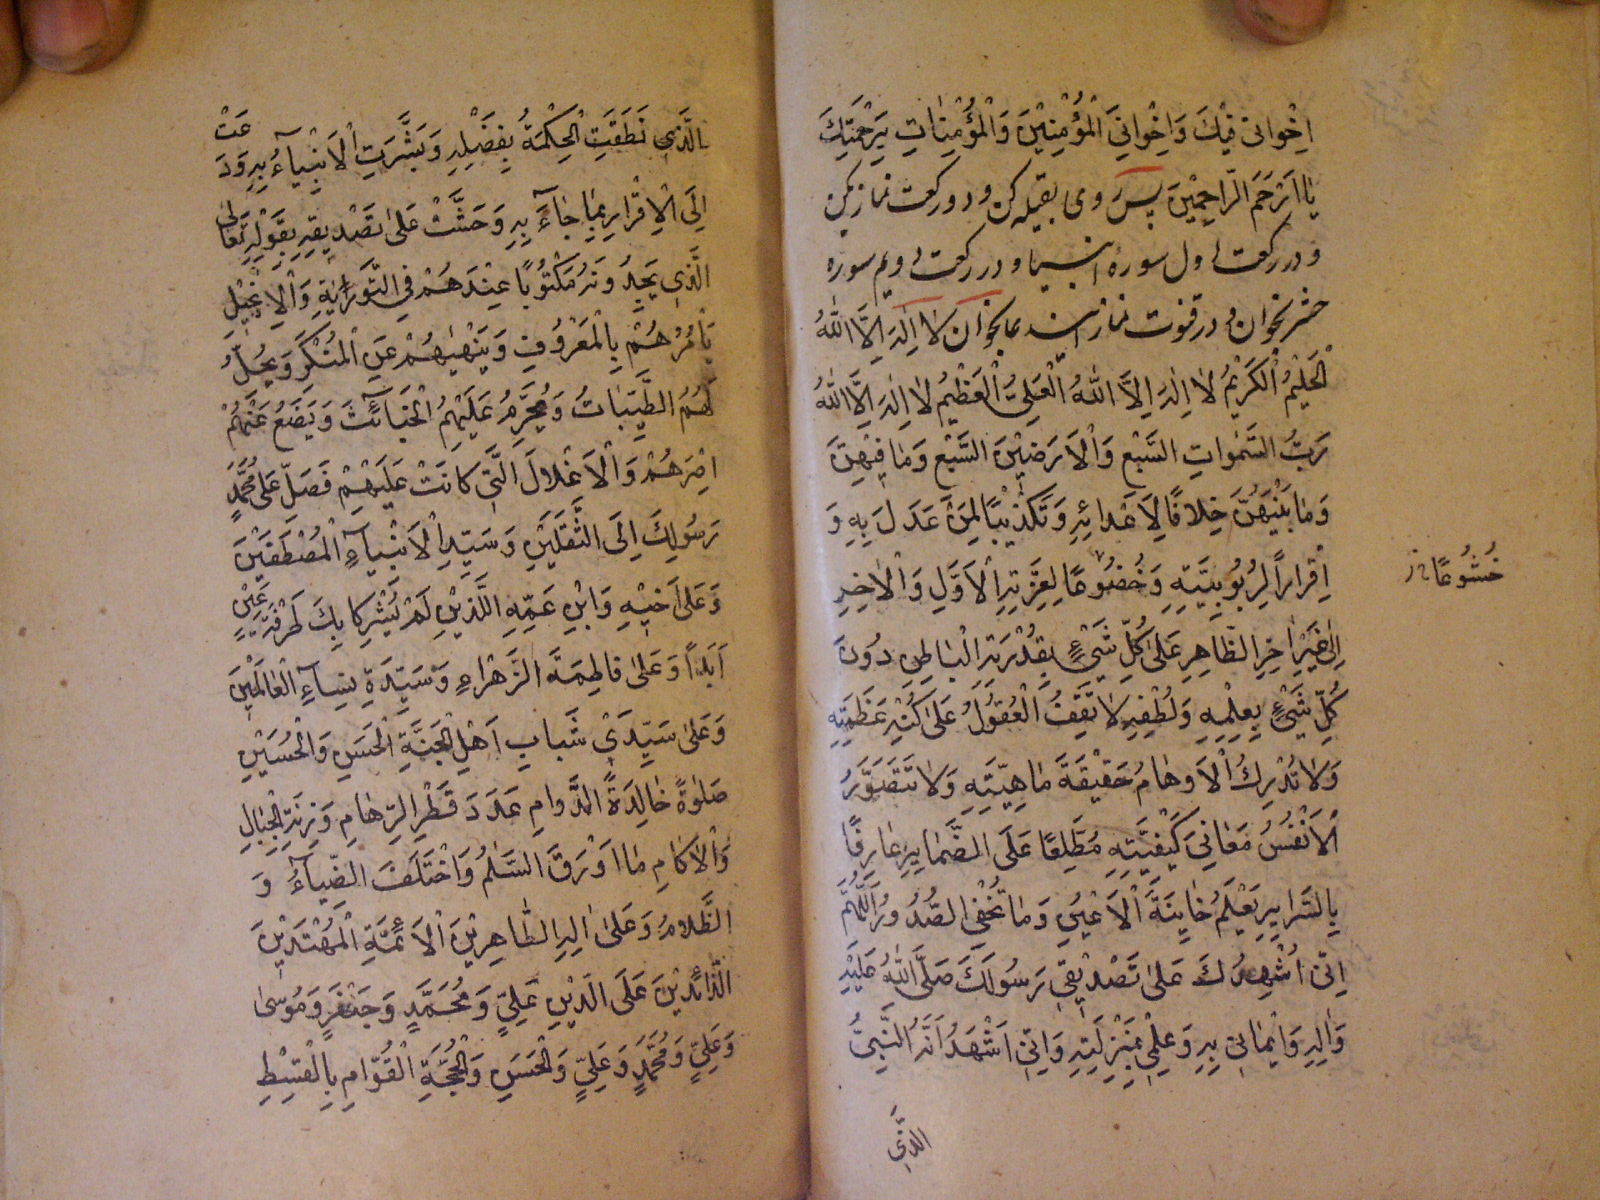 اِخْوانی فیْكَ وَاِخْوانِیَ الْمُؤْمِنِیْنَ وَالْمُؤْمِنٰاتِ بِرَحْمَتِكَ
یٰا اَرْحَمَ الرّاحِمِیْنَ پس روی بقبله کن و دو رکعت نماز بکن
و در رکعت اول سورهٔ انبیا و در رکعت دویم سوره
حشر بخوان و در قنوت نماز این دعا بخوان لا اِلٰهَ اِلَّا اللهُ
الْحَلیْمُ الْكَریْمُ لا اِلٰهَ اِلَّا اللهُ الْعَلِیُّ الْعَظیْمُ لا اِلٰهَ اِلَّا اللهُ
رَبُّ السَّمٰواتِ السَّبْعِ وَالْاَرَضیْنَ السَّبْعِ وَمٰا فِیْهِنَّ
وَمٰا بَیْنَهُنَّ خِلافًا لِاَعْدائِهِ وَتَكْذیْبًا لِمَنْ عَدَلَ بِهِ وَ
اِقْراراً لِرُبُوبِیَّتِهِ وَخُضُوْعًا لِعِزَّتِهِ الْاَوَّلِ وَالْاٰخِرِ
خُشُوعًا خ
اِلٰی غَیْرِ اٰخِرِ الظّاهِرِ عَلیٰ كُلِّ شَیْءٍ بِقُدْرَتِهِ الْبٰاطِنِ دُونَ
كُلِّ شَیْءٍ بِعِلْمِهِ وَلُطْفِهِ لا تَقِفُ الْعُقُوْلُ عَلیٰ كُنْهِ عَظَمَتِهِ
وَلا تُدْرِكُ الْاَوهٰامُ حَقیْقَةَ مٰاهِیَّتِهِ وَلا تَتَصَوَّرُ
الْاَنْفُسُ مَعٰانِیَ كَیْفِیَّتِهِ مُطَّلِعًا عَلَی الضَّمٰایِرِ عٰارِفًا
بِالسَّرٰایِرِ یَعْلَمُ خٰایِنَةَ الْاَعْیُنِ وَمٰا تُخْفِی الصُّدُورُ اَللّٰهُمَّ
اِنّی اُشْهِدُكَ عَلیٰ تَصْدیْقی رَسُولَكَ صَلَّی اللهُ عَلَیْهِ
وَاٰلِهِ وَایْمٰانی بِهِ وَعِلْمی بِمَنْزِلَتِهِ وَاِنّی اَشْهَدُ اَنَّهُ النَّبِیُّ
الَّذی
الَّذی نَطَقَتِ الْحِكْمَةُ بِفَضْلِهِ وَبَشَّرَتِ الْاَنْبِیآءُ بِهِ وَدَعَتْ
اِلَی الْاِقْرارِ بِمٰا جٰآءَ بِهِ وَحَثَّتْ عَلیٰ تَصْدیقِهِ بِقَوْلِهِ تَعٰالیٰ
الَّذی یَجِدُونَهُ مَكْتُوْبًا عِنْدَهُمْ فِی التَّوْرٰیةِ وَالْاِنْجِیْلِ
یَأْمُرُهُمْ بِالْمَعْرُوفِ وَیَنْهٰیهُمْ عَنِ الْمُنْكَرِ وَیُحِلُّ
لَهُمُ الطَّیِّبٰاتُ وَیُحَرِّمُ عَلَیْهِمُ الْخَبآئِثَ وَیَضَعُ عَنْهُمْ
اِصْرَهُمْ وَالْاَغْلالَ الَّتی كانَتْ عَلَیْهِمْ فَصَلِّ عَلیٰ مُحَمَّدٍ
رَسُوْلِكَ اِلَی الثَّقَلَیْنِ وَسَیِّدِ الْاَنْبِیآءِ الْمُصْطَفَیْنَ
وَعَلیٰ اَخیْهِ وَابْنِ عَمِّهِ اللَّذَیْنِ لَمْ یُشْرِكا بِكَ طَرْفَةَ عَیْنٍ
اَبَداً وَعَلیٰ فاطِمَةَ الزَّهْراءِ وَسَیِّدَةِ نِسآءِ الْعٰالَمیْنَ
وَعَلیٰ سَیِّدَیْ شَبٰابِ اَهْلِ الْجَنَّةِ الْحَسَنِ وَالْحُسَیْنِ
صَلوٰةً خٰالِدَةَ الدَّوامِ عَدَدَ قَطْرِ الرِّهٰامِ وَزِنَةِ الْجِبٰالِ
وَالْاٰكامِ مٰا اَوْرَقَ السَّلَمُ وَاخْتَلَفَ الضِّیآءُ وَ
الظَّلامُ وَعَلیٰ اٰلِهِ الطّاهِرِیْنَ الْاَئِمَّةِ الْمُهْتَدیْنَ
الذّائِدیْنَ عَلَی الدّیْنِ عَلِیٍّ وَمُحَمَّدٍ وَجَعْفَرٍ وَمُوسیٰ
وَعَلِیٍّ وَمُحَمَّدٍ وَعَلِیٍّ وَالْحَسَنِ وَالْحُجَّةِ الْقُوّامِ بِالْقِسْطِ